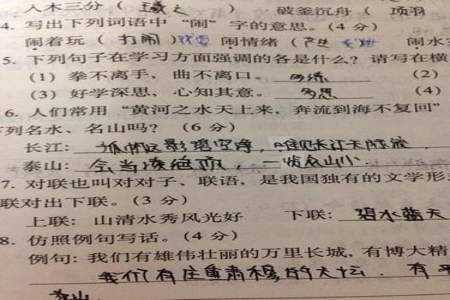 人木三分（ 破釜沉舟（项羽
4. 写出下列词语中“闹”字的意思。(4 分)
闹着玩（打闹） 闹情绪（产生 闹水
5. 下列句子在学习方面强调的各是什么？请写在横
(1) 拳不离手，曲不离口。 多练 (2)
(3) 好学深思，心知其意。 多思 (4)
6. 人们常用“黄河之水天上来，奔流到海不复回”
下列名水、名山吗？ (6 分)
长江：孤帆远影碧空尽，唯见长江天际流
泰山：会当凌绝顶，一览众山小
7. 对联也叫对对子、联语，是我国独有的文学形
联对出下联。(3 分)
上联：山清水秀风光好 下联：碧水蓝天
8. 仿照例句写话。(4 分)
例句：我们有雄伟壮丽的万里长城，有博大精
我们有庄重肃穆的天坛，有
泰山